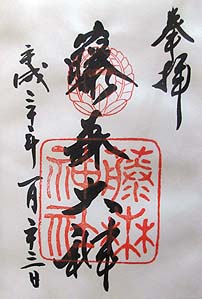 奉拝
藤森大神
藤森
神社
平成二十年一月